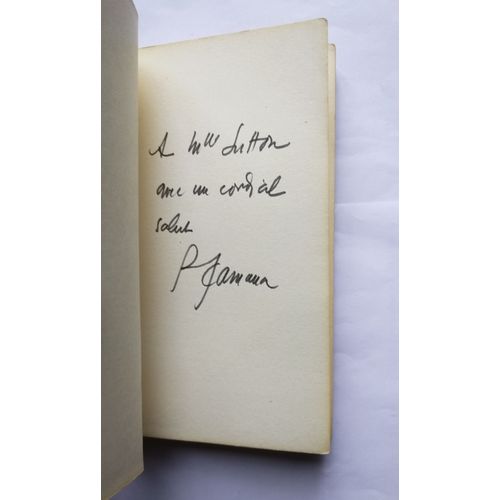 A Mlle Sutton
avec un cordial
salut
P Gamarra